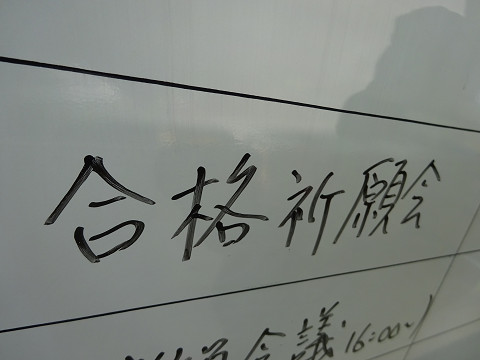 合格祈願会
会議 16:00~